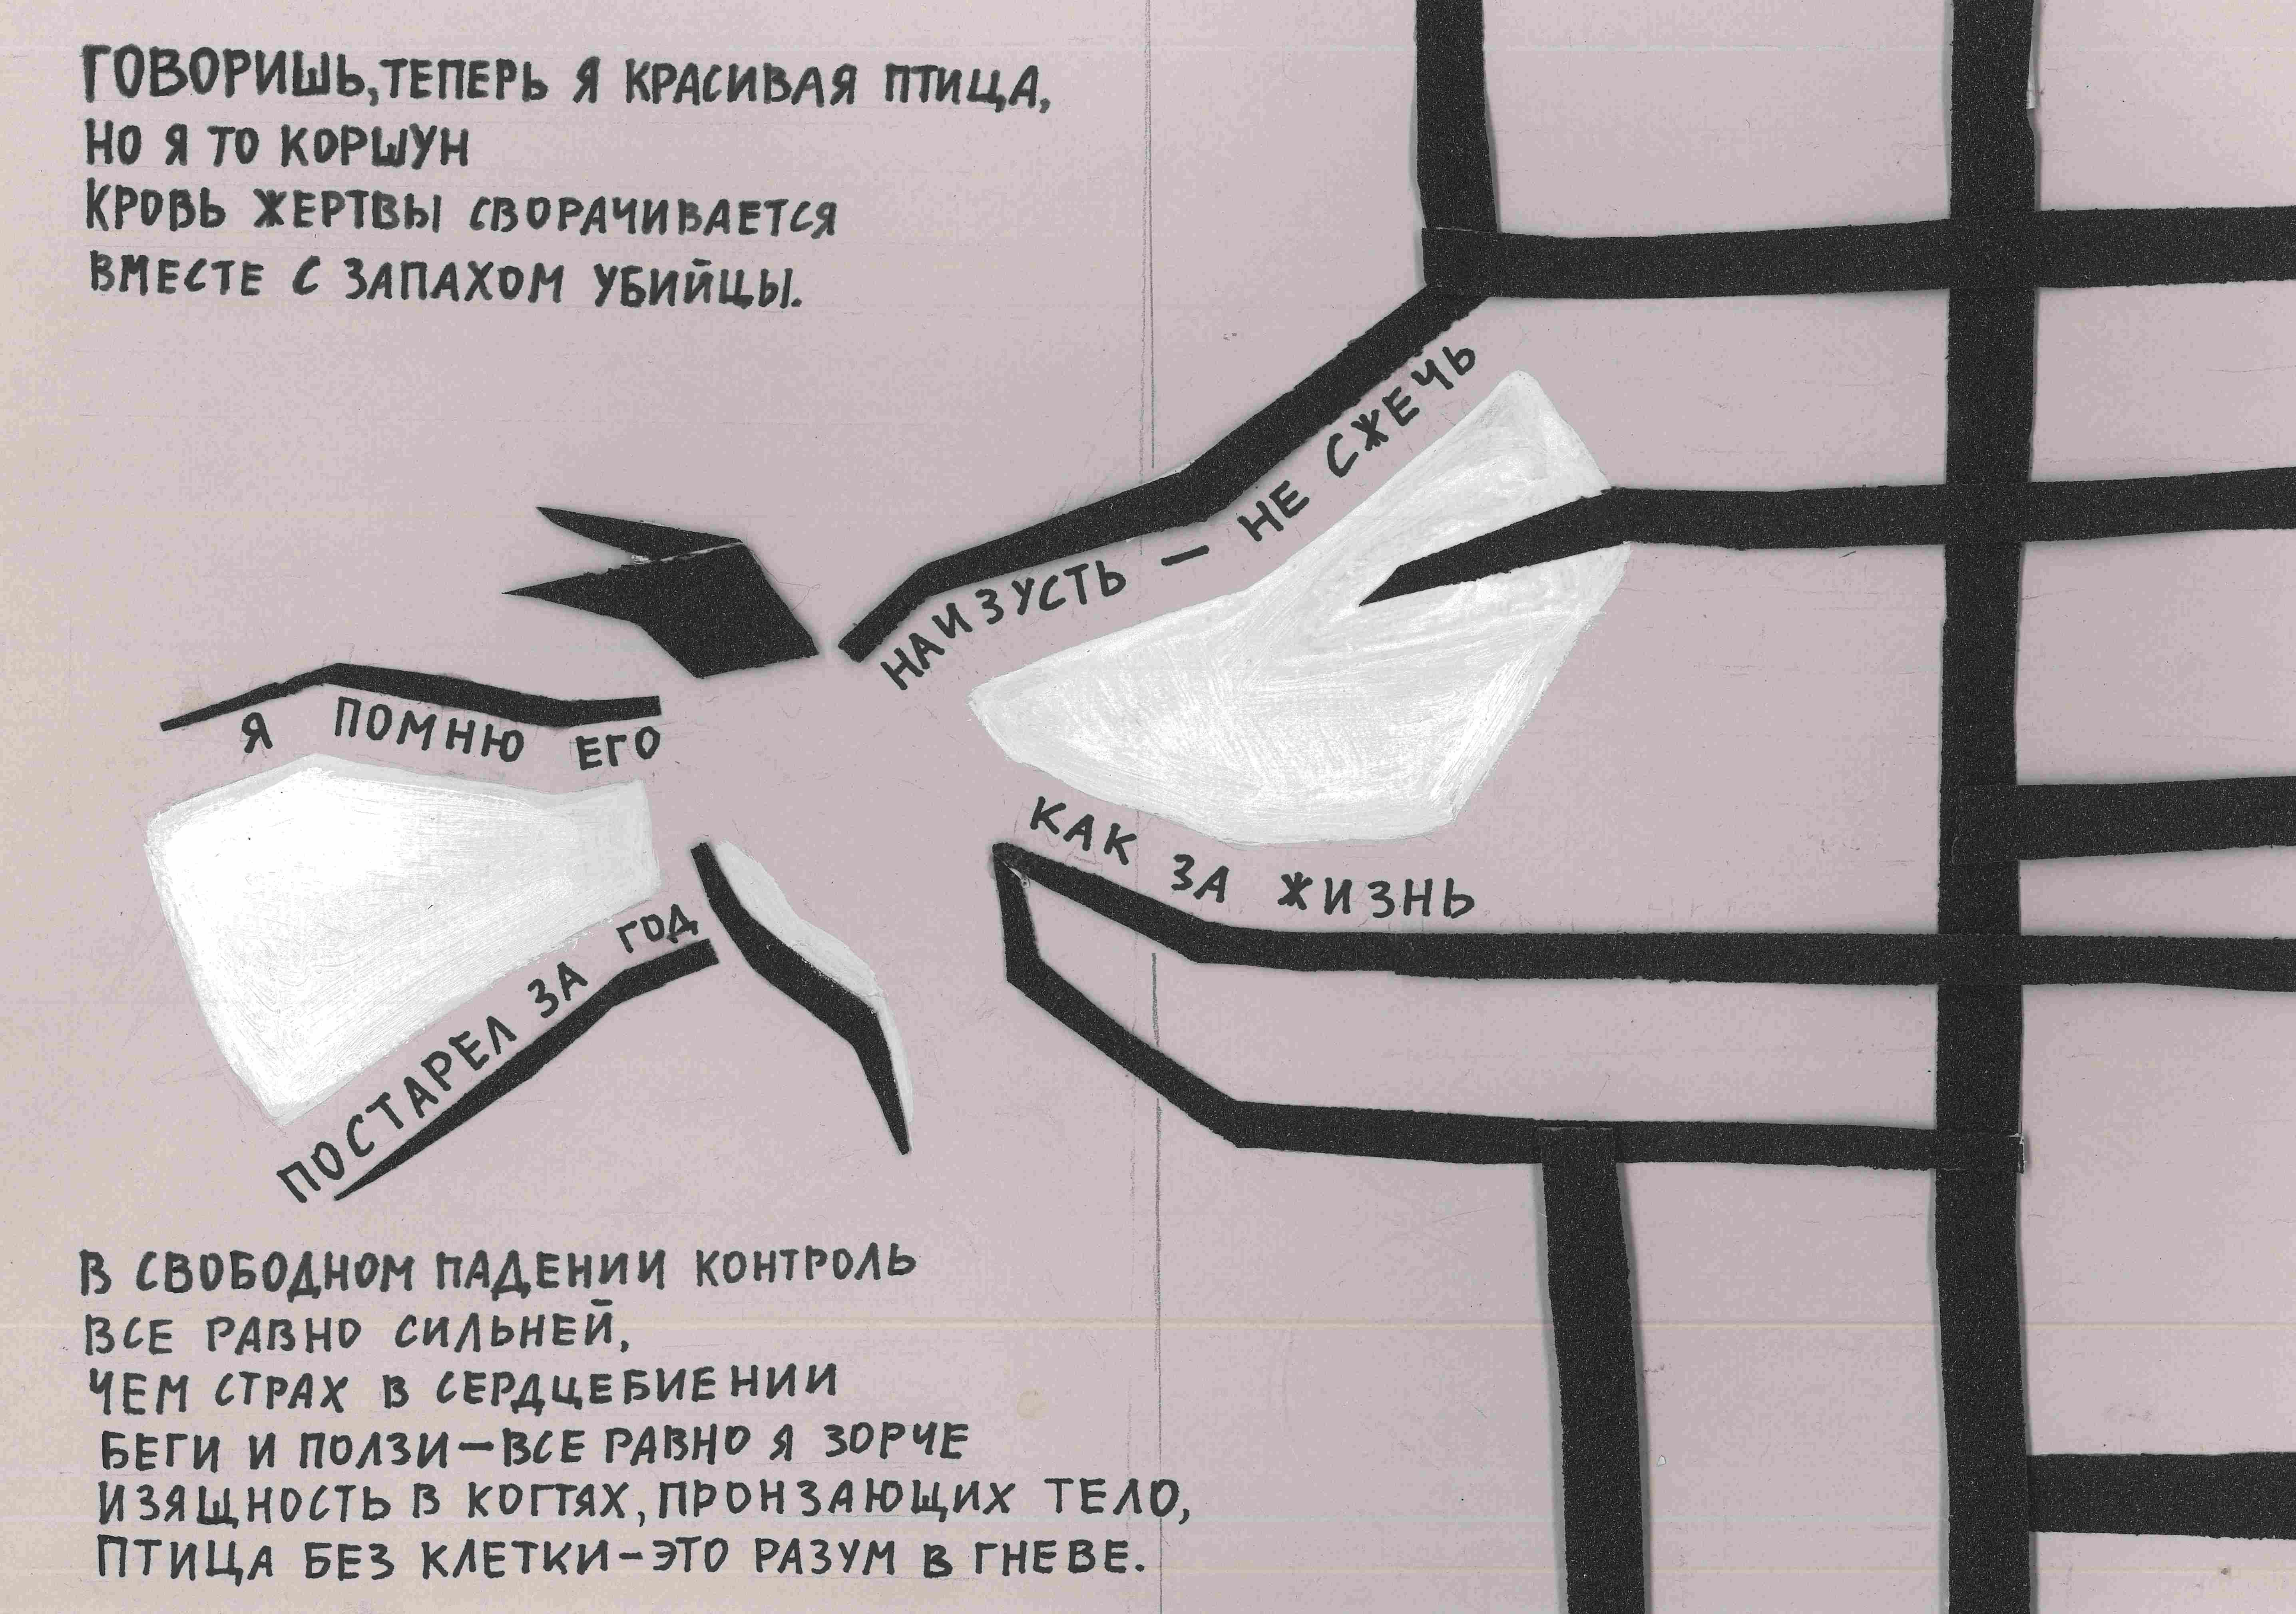 ГОВОРИШЬ, ТЕПЕРЬ Я КРАСИВАЯ ПТИЦА,
НО Я ТО КОРШУН
КРОВЬ ЖЕРТВЫ СВОРАЧИВАЕТСЯ
ВМЕСТЕ С ЗАПАХОМ УБИЙЦЫ.
Я ПОМНЮ ЕГО
НАИЗУСТЬ — НЕ СЖЕЧЬ
ПОСТАРЕЛ ЗА ГОД
КАК ЗА ЖИЗНЬ
В СВОБОДНОМ ПАДЕНИИ КОНТРОЛЬ
ВСЕ РАВНО СИЛЬНЕЙ,
ЧЕМ СТРАХ В СЕРДЦЕБИЕНИИ
БЕГИ И ПОЛЗИ — ВСЕ РАВНО Я ЗОРЧЕ
ИЗЯЩНОСТЬ В КОГТЯХ, ПРОНЗАЮЩИХ ТЕЛО,
ПТИЦА БЕЗ КЛЕТКИ - ЭТО РАЗУМ В ГНЕВЕ.